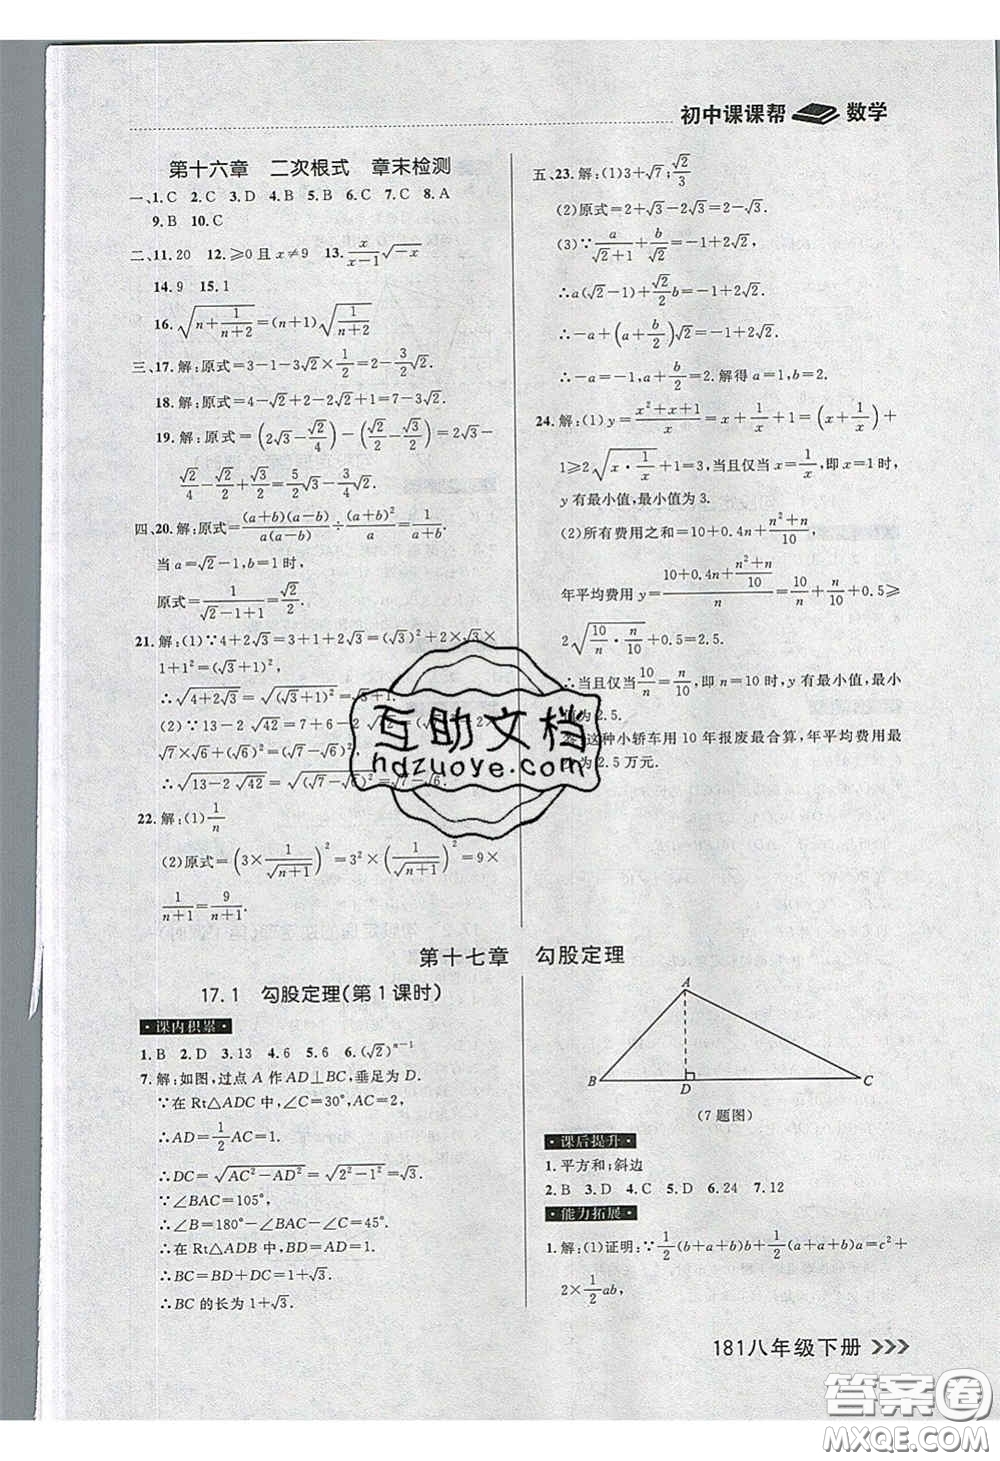 初中课课帮 数学
第十六章 二次根式 章末检测
一、1.C 2.C 3.D 4.B 5.B 6.C 7.C 8.A
9.B 10.C
二、11.20 12.≥0且x≠9 13.x/(x-1)√(-x)
14.9 15.1
16.√(n+1/(n+2))=(n+1)√(1/(n+2))
三、17.解:原式=3-1-3√2×1/2=2-3/2√2.
18.解:原式=4-√2+2-2√2+1=7-3√2.
19.解:原式=(2√3-√2/4)-(√2/2-√3/2)=2√3-
√2/4-√2/2+√3/2=5/2√3-3/4√2.
四、20.解:原式=(a+b)(a-b)/a(a-b)÷(a+b)²/a=1/(a+b).
当a=√2-1,b=1时,
原式=1/(√2-1+1)=√2/2.
21.解:(1)∵4+2√3=3+1+2√3=(√3)²+2×√3×
1+1²=(√3+1)²,
∴√(4+2√3)=√(√3+1)²=√3+1.
(2)∵13-2√42=7+6-2√42=(√7)²-2×
√7×√6+(√6)²=(√7-√6)²,
∴√(13-2√42)=√(√7-√6)²=√7-√6.
22.解:(1)1/n
(2)原式=(3×1/√(n+1))²=3²×(1/√(n+1))²=9×
1/(n+1)=9/(n+1).
五、23.解:(1)3+√7;√2/3
(2)原式=2+√3-2√3=2-√3.
(3)∵a/(√2+1)+b/√2=-1+2√2,
∴a(√2-1)+√2/2b=-1+2√2.
∴-a+(a+b/2)√2=-1+2√2.
∴-a=-1,a+b/2=2.解得a=1,b=2.
24.解:(1)y=(x²+x+1)/x=x+1/x+1=(x+1/x)+
1≥2√(x·1/x)+1=3,当且仅当x=1/x,即x=1时,
y有最小值,最小值为3.
(2)所有费用之和=10+0.4n+(n²+n)/10,
年平均费用y=(10+0.4n+(n²+n)/10)/n=10/n+n/10+0.5≥
2√(10/n·n/10)+0.5=2.5.
∴当且仅当10/n=n/10,即n=10时,y有最小值,最小
值为2.5.
答:这种小轿车用10年报废最合算,年平均费用最
为2.5万元.
互助文档
hdzuoye.com
第十七章 勾股定理
17.1 勾股定理(第1课时)
·课内积累·
1.B 2.D 3.13 4.6 5.6 6.(√2)ⁿ⁻¹
7.解:如图,过点A作AD⊥BC,垂足为D.
∵在Rt△ADC中,∠C=30°,AC=2,
∴AD=1/2AC=1.
∴DC=√(AC²-AD²)=√(2²-1²)=√3.
∵∠BAC=105°,
∴∠B=180°-∠BAC-∠C=45°.
∴在Rt△ADB中,∠BAD=∠B=45°.
∴BD=AD=1.
∴BC=BD+DC=1+√3.
∴BC的长为1+√3.
A
B D C
(7题图)
·课后提升·
1.平方和;斜边
2.B 3.D 4.C 5.D 6.24 7.12
·能力拓展·
1.解:(1)证明:∵1/2(b+a+b)b+1/2(a+a+b)a=c²+
2×1/2ab,
181八年级下册
答案圈
MXQE.COM